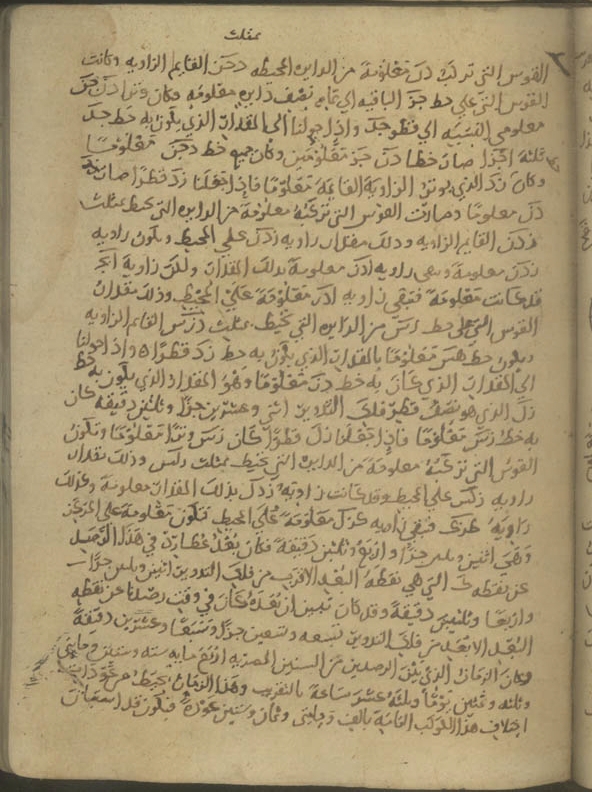 بمثلث
القوس التي تركب دن معلومة من الدايره المحيطه دحن القايم الزاويه وكانت
القوس التي علي خط حز الباقيه الي تمام نصف دايره معلومه وكان وترا دن حز
معلومي النسبه الي قطر جد واذا حولنا الي المقدار الذي يكون به خط جد
ثلثة اجزا صار خطا دن حز معلومين وكان جميع خط دحن معلوما
وكان زد الذي يوتر الزاوية القايمة معلوما فاذا جعلنا زد قطرا صار
دن معلوما وصارت القوس التي تركبه معلومة من الدايره التي تحيط بمثلث
زدن القايم الزاويه وذلك مقدار زاويه زدن علي المحيط وتكون زاويه
زدن معلومة وتبقي زاويه ادن معلومة بذلك المقدار ولكن زاوية
قد كانت معلومة فتبقي زاويه ادر معلومة علي المحيط وذلك مقدار
القوس التي علي خط رس من الدايره التي تحيط بمثلث دزس القايم الزاويه
ويكون خط رس معلوما بالمقدار الذي يكون به خط زد قطرا واذا حولنا
الي المقدار الذي كان به خط دن معلوما وهو المقدار الذي يكون به خط
زل الذي هو نصف قطر فلك التدوير اثني وعشرين جزءا وثلثين دقيقة كان
به خط زس معلوما فاذا جعلنا زل قطرا كان زس وترا معلوما وتكون
القوس التي تركبه معلومة من الدايره التي تحيط بمثلث زلس وذلك مقدار
زاويه زلس علي المحيط وقد كانت زاوية زدل بذلك المقدار معلومة وكذلك
زاوية فتبقي زاويه معلومة علي المحيط فتكون معلومة علي المركز
وهي اثنين وثلثين جزءا واربع وثلثين دقيقة فكان بعد عطارد في هذا الرصد
عن نقطه التي هي نقطة البعد الاقرب من فلك التدوير اثنين وثلثين جزءا
واربعا وثلثين دقيقة وقد كان تبين ان بعده كان في وقت رصدنا عن نقطه
البعد الابعد من فلك التدوير تسعه وتسعين جزءا وسبعا وعشرين دقيقة
وكان الزمان الذي بين الرصدين من السنين المصريه اربع مايه سنه وسنتين ومايتي
وثلثه وثمنين يوما وثلثة عشر ساعة بالتقريب وهذا الزمان يحيط من عودات
اختلاف هذا الكوكب التامة بالف ومايتي وثمان وستين عودة فيكون قد استبان